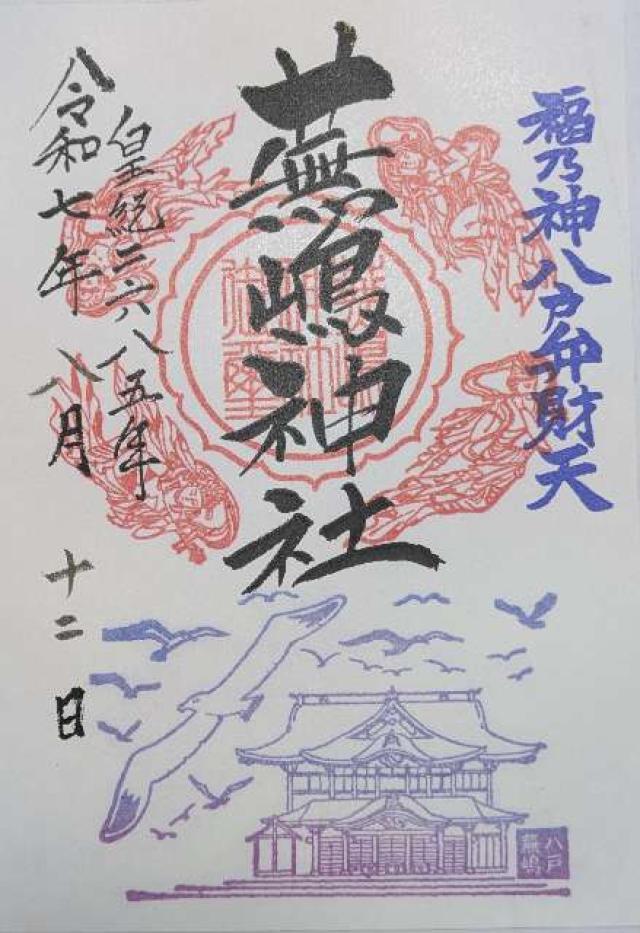 福乃神八戸弁財天
蕪嶋神社
皇統二六八五年
八令和七年八月十二日
八戸
蕪嶋